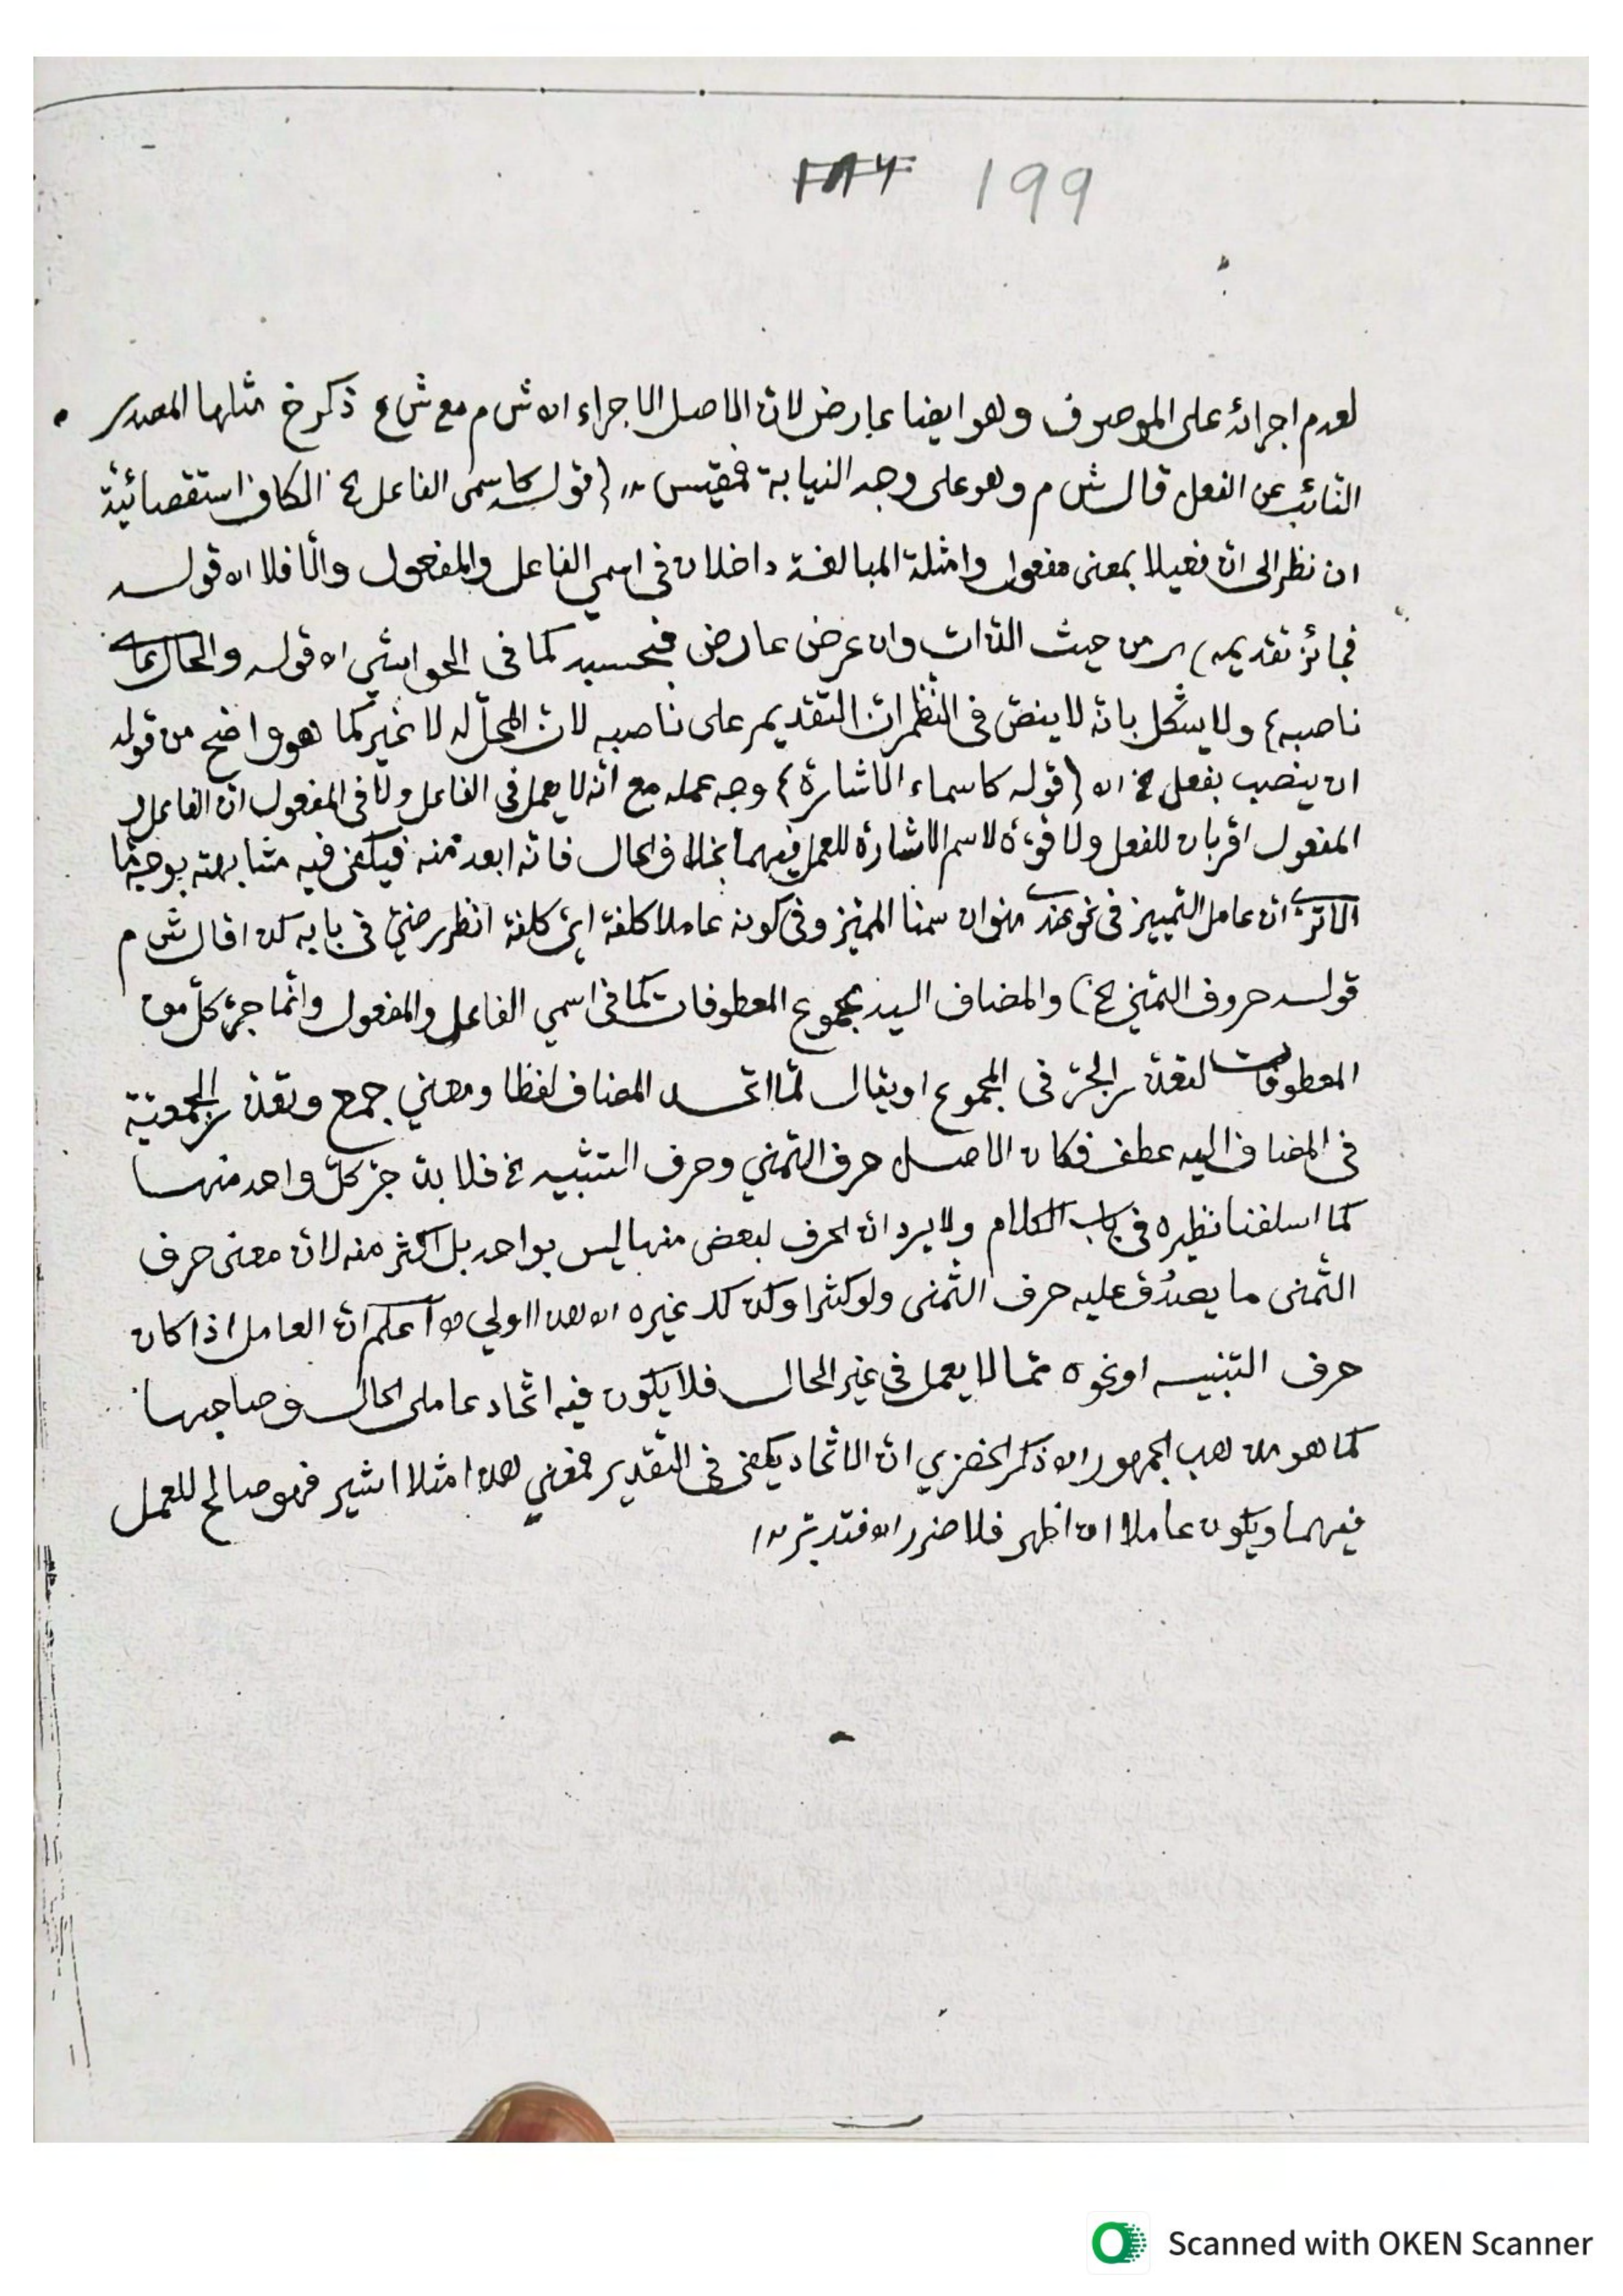 199
لعدم اجرائه على الموصوف وهو ايضا عارض لان الاصل الاجراء اه ش م مع ش ع ذكرخ مثلها المصدر
النائب عن الفعل قال ش م وهو على وجه النيابة فمقيس (قوله كاسمى الفاعل الخ) الكاف استقصائية
ان نظر الى انّ فعيلا بمعنى مفعول وامثلة المبالغة داخلان فى اسمي الفاعل والمفعول والّا فلا اه قوله
فجائز تقديمه) من حيث الذات وان عرض عارض فبحسبه كما فى الحواشي اه قوله والحال
ناصبه) ولا يشكل بانّه لا ينصّ فى النظم انّ التقديم على ناصبه لانّ المحلّ له لا غير كما هو واضح من قوله
ان ينصب بفعل الخ اه (قوله كاسماء الاشارة) وجه عمله مع انّه لا يعمل فى الفاعل ولا فى المفعول انّ الفاعل و
المفعول اقربان للفعل ولا قوّة لاسم الاشارة للعمل فيهما بخلاف الحال فانّه ابعد منه فيكفى فيه مشابهته بوجه مّا
الا ترى انّ عامل التمييز فى نحو عندى منوان سمنا المميّز وفى كونه عاملا كلفة اىّ كلفة انظر رضيّ فى بابه كذا قال ش م
قوله حروف التمني الخ) والمضاف اليه مجموع المعطوفات كما فى اسمي الفاعل والمفعول وانّما جرّ كلّ من
المعطوفات لتعذّر الجرّ فى المجموع او يقال لمّا اتّحد المضاف لفظا ومعني جمع وتعذّر الجمعيّة
فى المضاف اليه عطف فكان الاصل حرف التمني وحرف التنبيه الخ فلا بدّ جرّ كلّ واحد منها
كما اسلفنا نظيره فى باب الكلام ولا يرد انّ الحرف لبعض منها ليس بواحد بل اكثر منه لانّ معنى حرف
التّمنى ما يصدُق عليه حرف التّمنى ولو كثرا وكذ كد غيره اه هذا اولي اعلم انّ العامل اذا كان
حرف التنبيه او نحوه ممّا لا يعمل فى غير الحال فلا يكون فيه اتّحاد عاملى الحال وصاحبها
كما هو مذهب الجمهور اه ذكر الخضري انّ الاتّحاد يكفى فى التّقدير فمعني هذا مثلا اشير فهو صالح للعمل
فيهما ويكون عاملا ان اظهر فلا ضرر اه فتدبّر
Scanned with OKEN Scanner